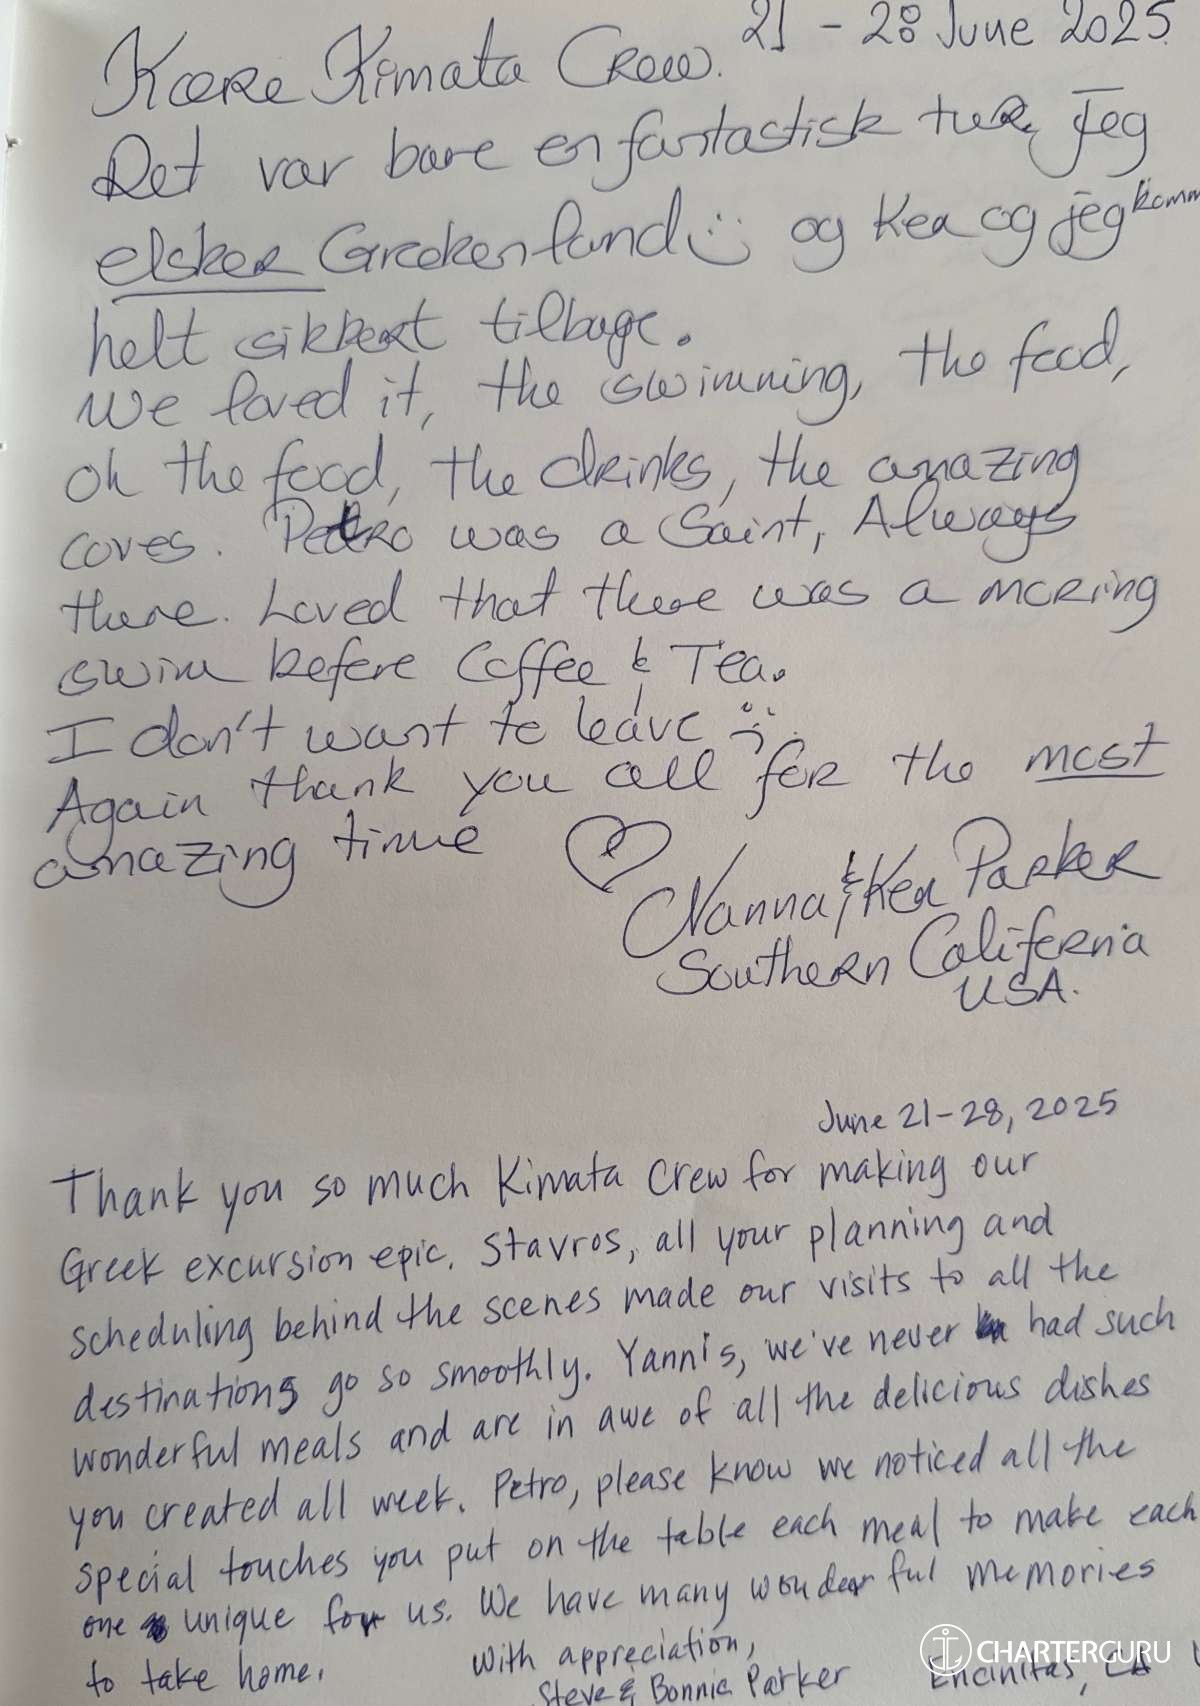 21 - 28 June 2025
Kære Kimata Crew.
Det var bare en fantastisk tur, Jeg
elsker Grækenland og Ken og jeg komm
helt sikkert tilbage.
We loved it, the swimming, the food,
oh the food, the drinks, the amazing
coves. Petro was a Saint, Always
there. Loved that there was a moring
swim before Coffee & Tea.
I don't want to leave
Again thank you all for the most
amazing time
Nanna & Ken Parker
Southern California
USA.
June 21-28, 2025
Thank you so much Kimata Crew for making our
Greek excursion epic. Stavros, all your planning and
scheduling behind the scenes made our visits to all the
destinations go so smoothly. Yannis, we've never had such
wonderful meals and are in awe of all the delicious dishes
you created all week. Petro, please know we noticed all the
special touches you put on the table each meal to make each
one unique for us. We have many wonderful memories
to take home.
With appreciation,
Steve & Bonnie Parker
Encinitas, CA
CHARTERGURU